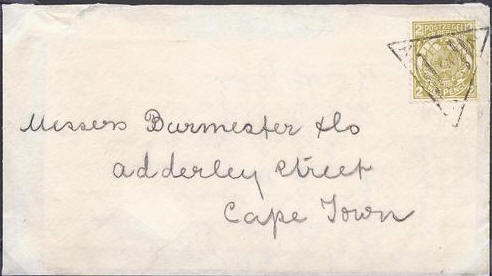 2 POSTZEGEL 2
Messers Burmester & Co
Adderley Street
Cape Town